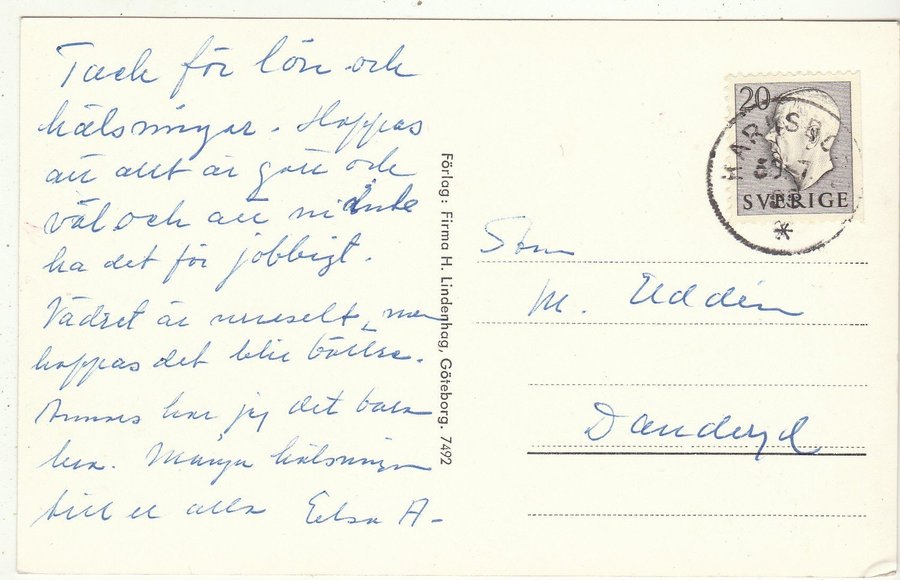 Tack för lön och
hälsningar. Hoppas
att allt är gott och
väl och att ni inte
ha det för jobbigt.
Vädret är uruselt, men
hoppas det blir bättre.
Annars har jag det bara
bra. Många hälsningar
till er alla Elsa A-
Förlag: Firma H. Lindenhag, Göteborg. 7492
20
SVERIGE
M. Uddén
Danderyd